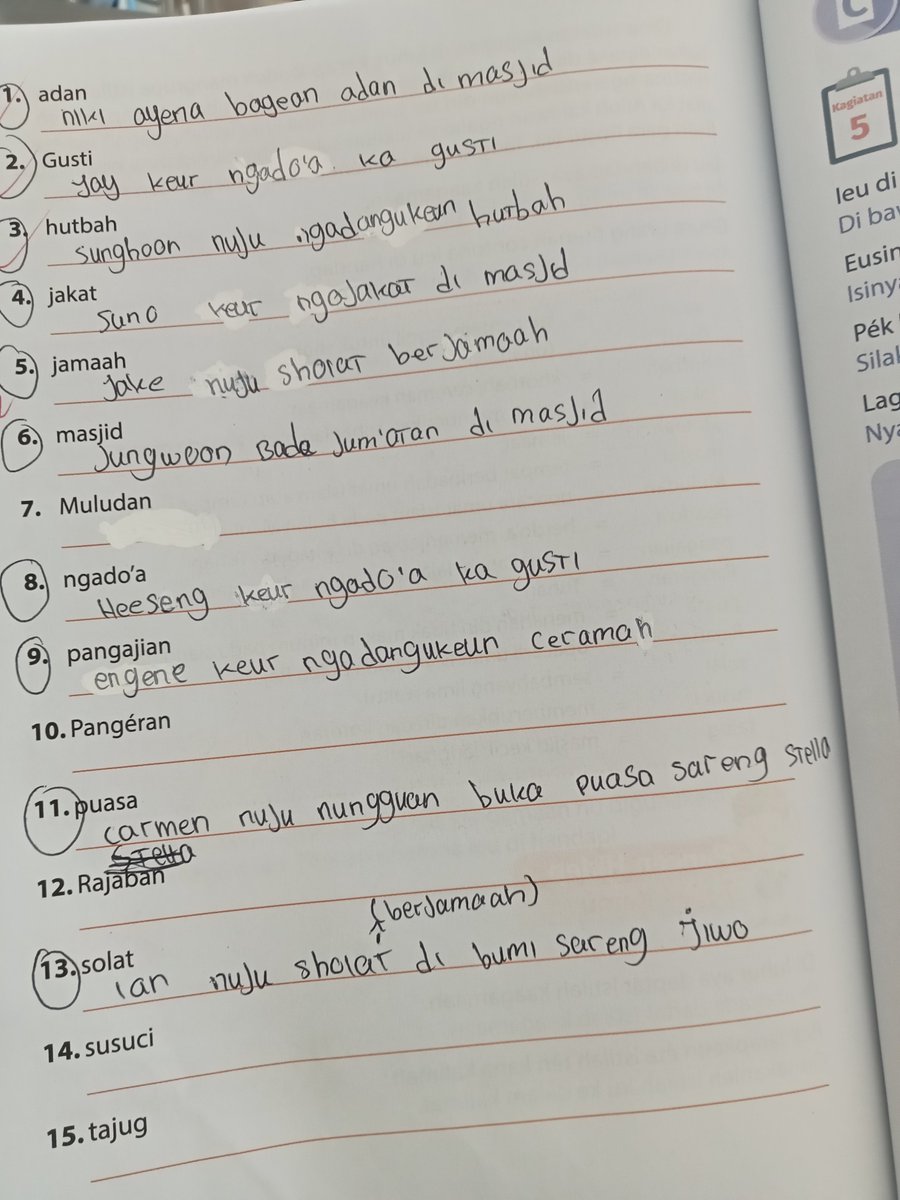 1. adan
niki ayena bagean adan di masjid
2. Gusti
Jay keur ngado'a ka gusti
3. hutbah
Sunghoon nuju ngadangukeun hutbah
4. jakat
Suno keur ngajakat di masjid
5. jamaah
Jake nuju sholat berjamaah
6. masjid
Jungwoon Bade Jum'atan di masjid
7. Muludan
8. ngado'a
Heeseng keur ngado'a ka gusti
9. pangajian
engene keur ngadangukeun ceramah
10. Pangéran
11. puasa
carmen nuju nungguan buka puasa sareng Stella
Stella
12. Rajaban
(berjamaah)
13. solat
ian nuju sholat di bumi sareng jiwo
14. susuci
15. tajug
C
Kagiatan
5
Ieu di
Di
Eusin
Isiny
Pék
Silal
Lag
Nya